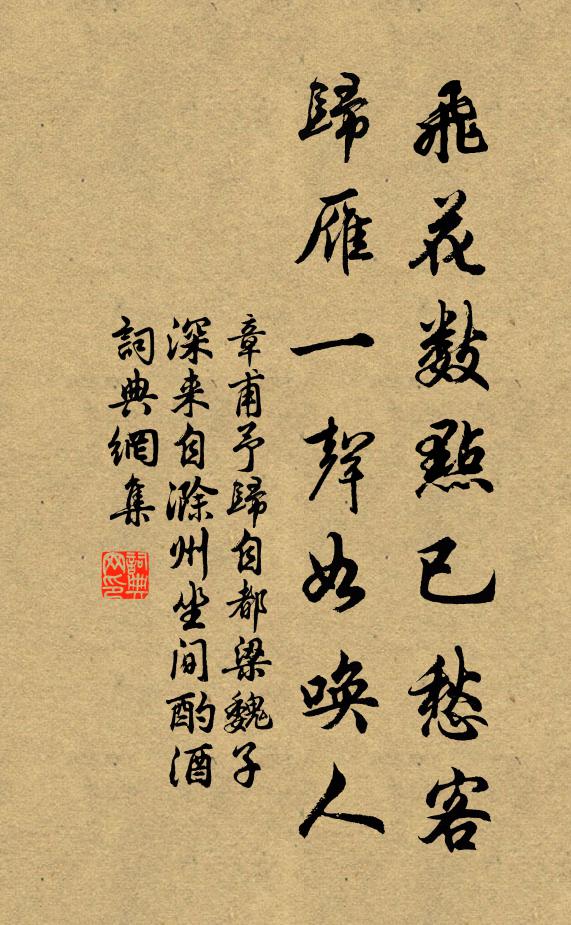 飛花數點已愁客
歸雁一聲如喚人
章甫予歸自都梁魏子
深来自滁州坐间酌酒
詞典網集
詞典網印